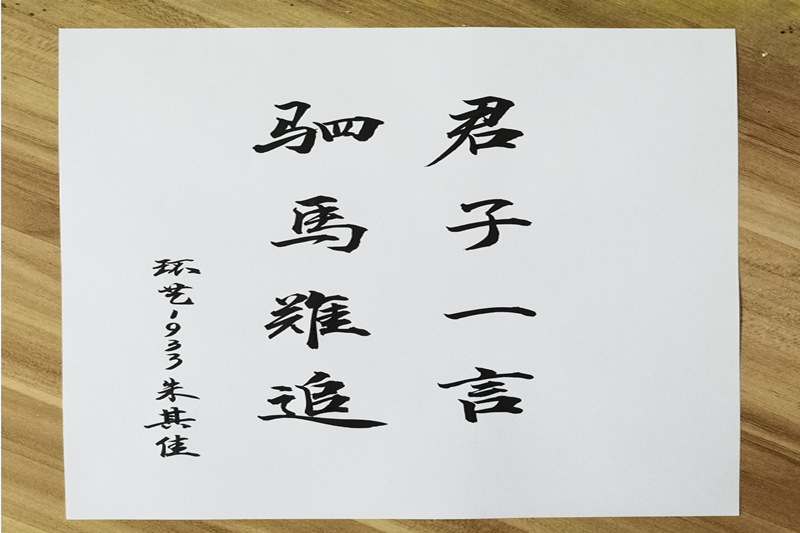 君子一言
驷馬难追
环艺1933朱其佳